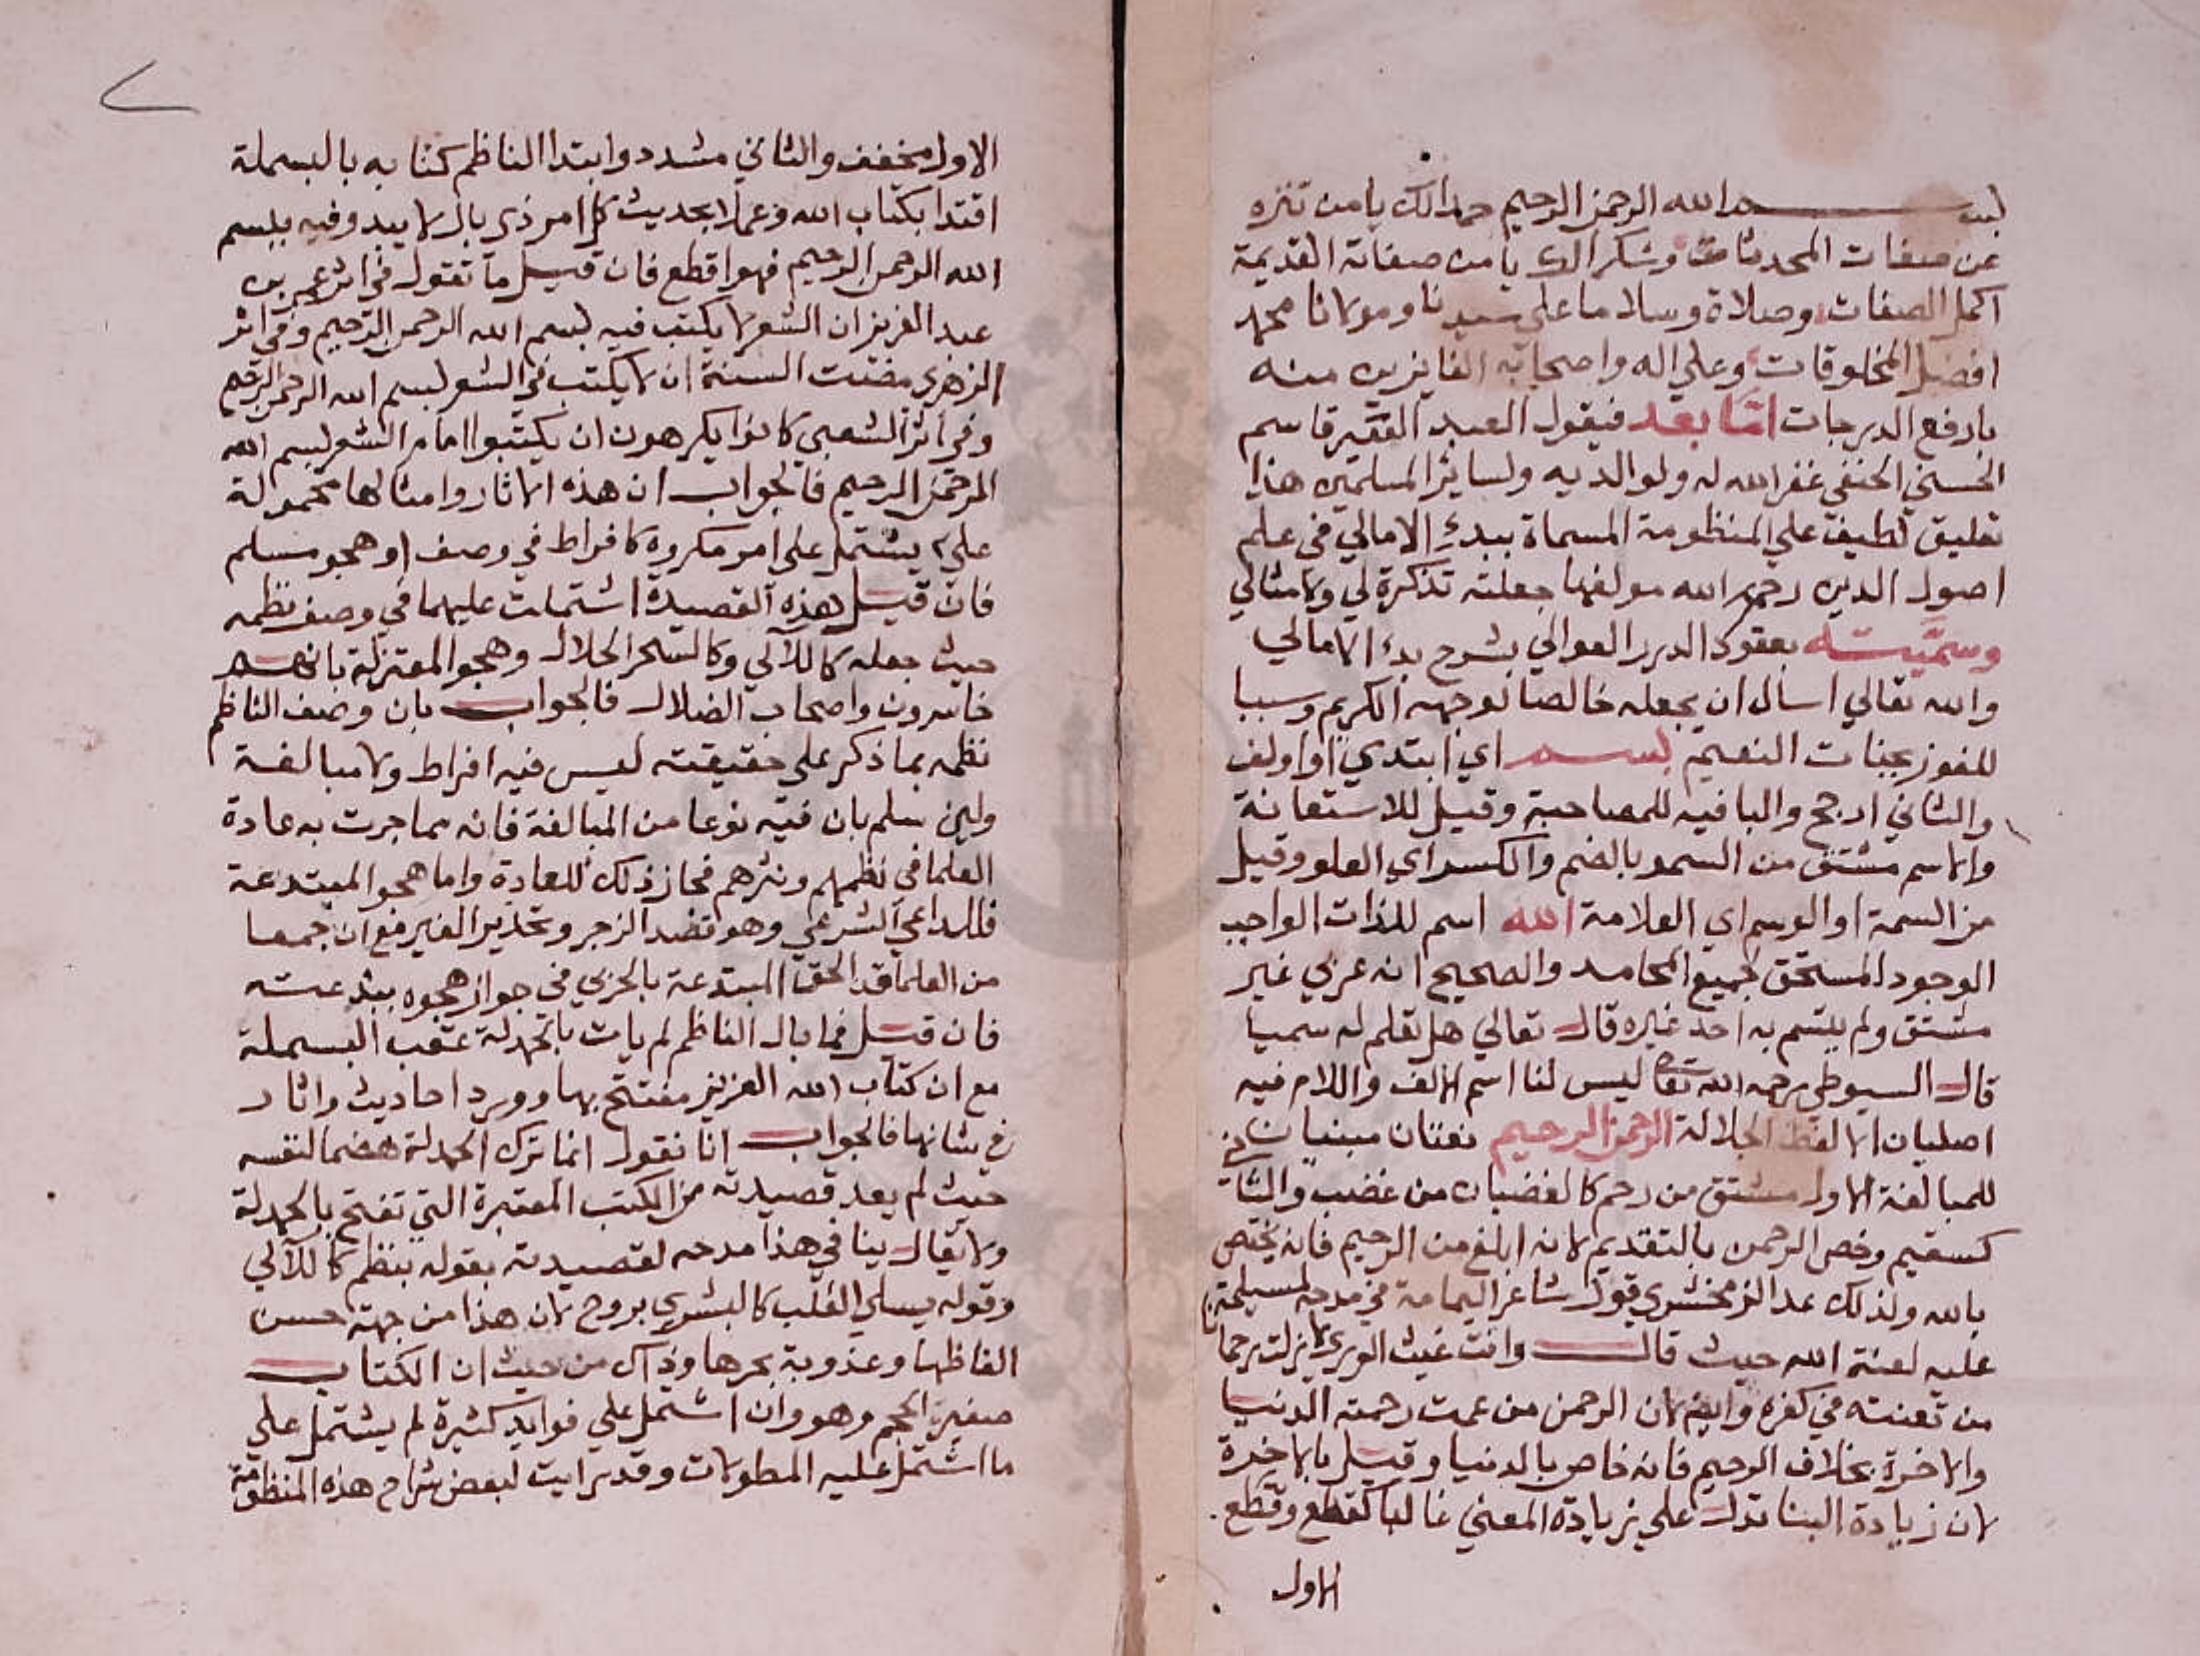 بسم الله الرحمن الرحيم حمدا لك يا من تنزه
عن صفات المحدثات وشكرا لك يا من صفاته القديمة
اكمل الصفات وصلاة وسلاما علي سيدنا ومولانا محمد
افضل المخلوقات وعلي اله واصحابه الفايزين منه
بارفع الدرجات اما بعد فيقول العبد الفقير قاسم
الحسني الحنفي غفر الله له ولوالديه ولساير المسلمين هذا
تعليق لطيف علي المنظومة المسماة ببدء الامالي في علم
اصول الدين رحم الله مولفها جعلته تذكرة لي ولامثالي
وسميته بعقود الدرر العوالي بشرح بدء الامالي
والله تعالي اسال ان يجعله خالصا لوجهه الكريم وسببا
للفوز بجنات النعيم بسم اي ابتدي او اولف
والثاني ارجح والبا فيه للمصاحبة وقيل للاستعانة
والاسم مشتق من السمو بالضم والكسر اي العلو وقيل
من السمة او الوسم اي العلامة الله اسم للذات الواجب
الوجود المستحق لجميع المحامد والصحيح انه عربي غير
مشتق ولم يتسم به احد غيره قال تعالي هل تعلم له سميا
قال السيوطي رحمه الله تعا ليس لنا اسم الالف واللام فيه
اصليان الا لفظ الجلالة الرحمن الرحيم نعتان مبنيان
للمبالغة الاول مشتق من رحم كالغضبان من غضب والثا
كسقيم وخص الرحمن بالتقديم لانه ابلغ من الرحيم فانه يختص
بالله ولذلك عد الزمخشري قول شاعر اليمامة في مدحه لمسيلمة
عليه لعنة الله حيث قال وانت غيث الوري لا زلت رحمانا
من تعنته في كفره وايضا لان الرحمن من عمت رحمته الدنيا
والاخرة بخلاف الرحيم فانه خاص بالدنيا وقيل بالاخرة
لان زيادة البنا تدل علي زيادة المعني غالبا كقطع وقطع
الاول
الاول مخفف والثاني مشدد وابتدا الناظم كتابه بالبسملة
اقتدا بكتاب الله وعملا بحديث كل امر ذي بال لا يبدو فيه ببسم
الله الرحمن الرحيم فهو اقطع فان قيل ما تقول في اثر عمر بن
عبد العزيز ان الشعر لا يكتب فيه بسم الله الرحمن الرحيم وفي اثر
الزهري مضت السنة ان لا يكتب في الشعر بسم الله الرحمن الرحيم
وفي اثر الشعبي كانوا يكرهون ان يكتبوا امام الشعر بسم الله
الرحمن الرحيم فالجواب ان هذه الاثار وامثالها محمولة
علي يشتمل علي امر مكروه كافراط في وصف او هجو مسلم
فان قيل هذه القصيدة اشتملت عليهما في وصف نظمه
حيث جعله كاللآلي وكالسحر الحلال وهجو المعتزلة بانهم
خاسرون واصحاب الضلال فالجواب بان وصف الناظم
نظمه بما ذكر علي حقيقته ليس فيه افراط ولا مبالغة
ولين سلم بان فيه نوعا من المبالغة فانه مما جرت به عادة
العلما في نظمهم ونثرهم فجاز ذلك للعادة واما هجو المبتدعة
فللداعي الشرعي وهو قصد الزجر وتحذير الغير مع ان جمعا
من العلما قد الحق المبتدعة بالحربي في جواز هجوه ببدعته
فان قيل فما بال الناظم لم يات بالحمدلة عقب البسملة
مع ان كتاب الله العزيز مفتتح بها وورد احاديث واثار
في شانها فالجواب انا نقول انما ترك الحمدلة هضما لنفسه
حيث لم يعد قصيدته من الكتب المعتبرة التي تفتح بالحمدلة
ولا يقال ينافي هذا مدحه لقصيدته بقوله بنظم كاللآلي
وقوله يسلي القلب كالبشري بروح لان هذا من جهة حسن
الفاظها وعذوبة بحرها وذاك من حيث ان الكتاب
صغير الحجم وهو وان اشتمل علي فوايد كثيرة لم يشتمل علي
ما اشتمل عليه المطولات وقد رايت لبعض شراح هذه المنظومة